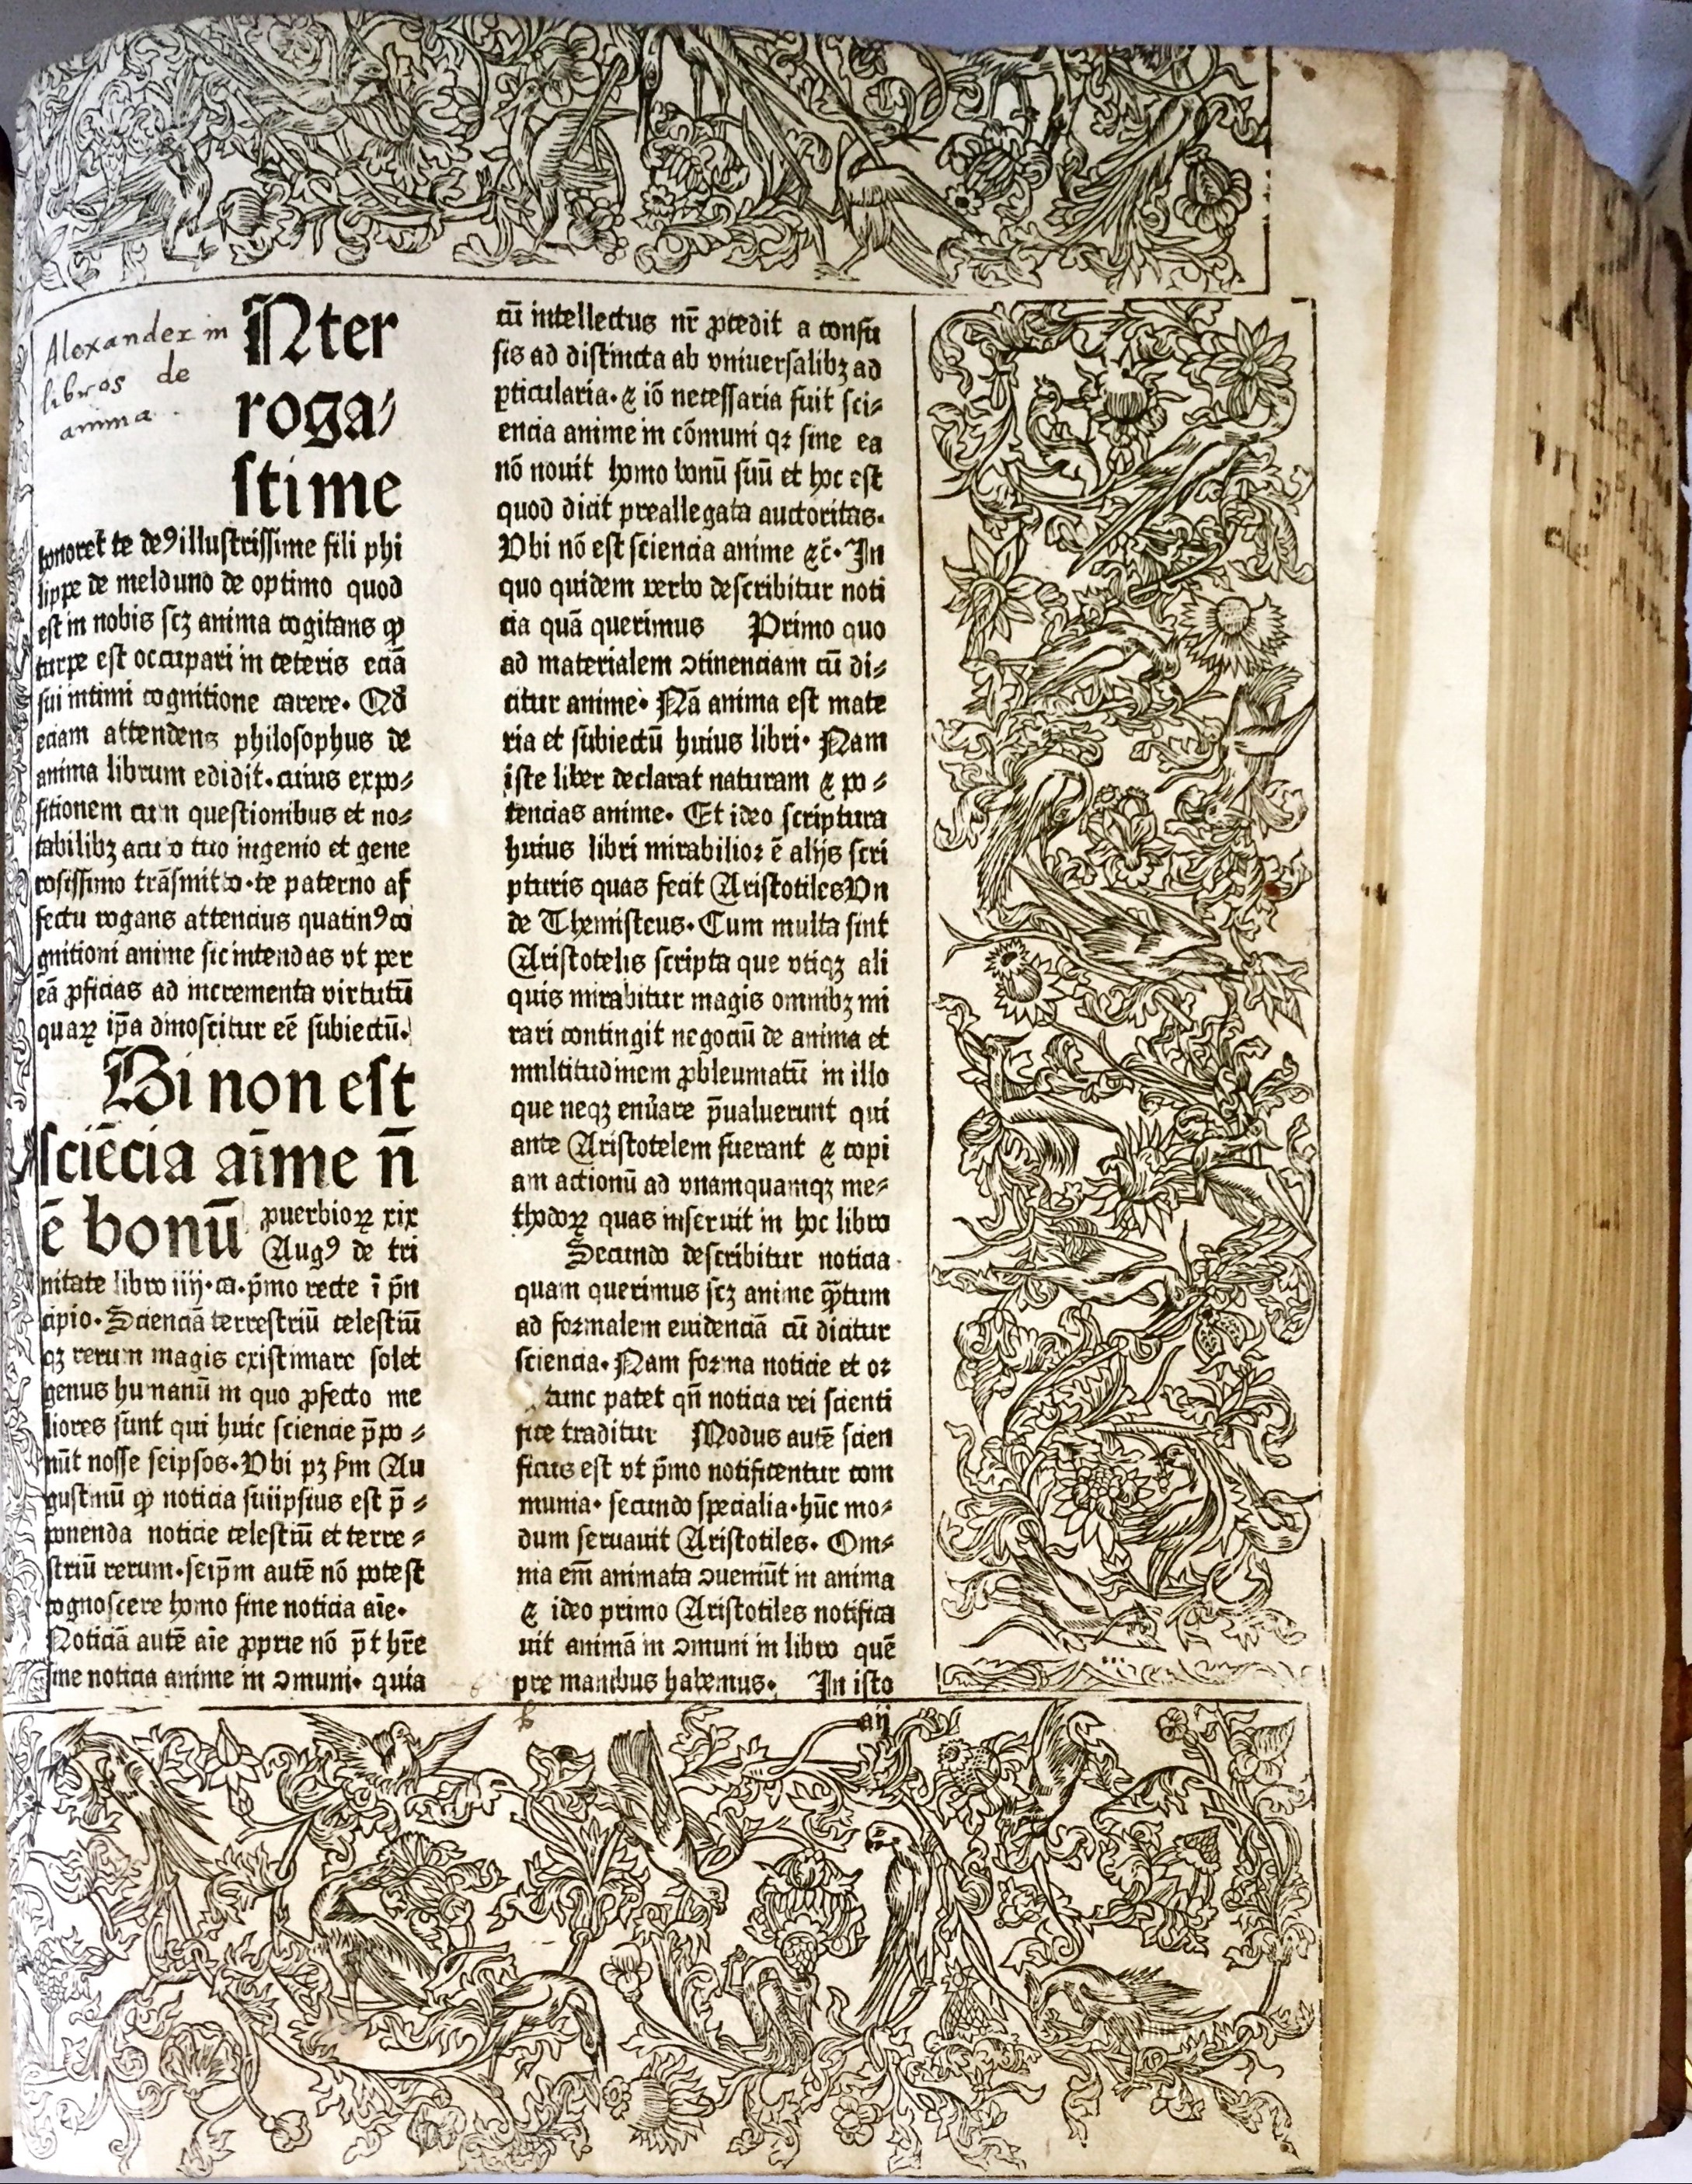 Alexander in
libros de
anima
Nter
roga⸗
stime
honoret̄ te deꝰ illustrissime fili phi
lippe de melduno de optimo quod
est in nobis scꝫ anima cogitans ꝙ
turpe est occupari in ceteris eciā
sui intimi cognitione carere. Qd̄
eciam attendens philosophus de
anima librum edidit. cuius expo⸗
sitionem cum questionibus et no⸗
tabilibꝫ acuto tuo ingenio et gene
rosissimo trāsmitto. te paterno af
fectu rogans attencius quatinꝰ co
gnitioni anime sic intendas vt per
eā ꝓficias ad incrementa virtutū
quaꝝ ip̄a dinoscitur eē subiectū.
Bi non est
sciēcia aīme n̄
ē bonū ꝓuerbioꝝ xix
Augꝰ de tri
nitate libro iiij. ca. p̄mo recte ī p̄n
cipio. Scienciā terrestriū celestiū
qꝫ rerum magis existimare solet
genus humanū in quo ꝓfecto me
liores sunt qui huic sciencie p̄po⸗
nūt nosse seipsos. Vbi pꝫ s̄m Au
gustinū ꝙ noticia suiipsius est p̄⸗
ponenda noticie celestiū et terre⸗
striū rerum. seip̄m autē nō potest
cognoscere homo sine noticia aīe.
Noticiā autē aīe ꝓprie nō p̄t hr̄e
sine noticia anime in ꝯmuni. quia
cū intellectus nr̄ ꝓcedit a confu
sis ad distincta ab vniuersalibꝫ ad
ꝑticularia. & iō necessaria fuit sci⸗
encia anime in cōmuni qꝛ sine ea
nō nouit homo bonū suū et hoc est
quod dicit preallegata auctoritas.
Vbi nō est sciencia anime &c̄. In
quo quidem verbo describitur noti
cia quā querimus Primo quo
ad materialem ꝯtinenciam cū di⸗
citur anime. Nā anima est mate
ria et subiectū huius libri. Nam
iste liber declarat naturam & po⸗
tencias anime. Et ideo scriptura
huius libri mirabilioꝛ ē alijs scri
pturis quas fecit Aristotiles Vn
de Themisteus. Cum multa sint
Aristotelis scripta que vtiqꝫ ali
quis mirabitur magis omnibꝫ mi
rari contingit negociū de anima et
multitudinem ꝓbleumatū in illo
que neqꝫ enūare p̄ualuerunt qui
ante Aristotelem fuerant & copi
am actionū ad vnamquamqꝫ me⸗
thodoꝝ quas inseruit in hoc libro
Secundo describitur noticia
quam querimus scꝫ anime qͣ̄tum
ad foꝛmalem euidenciā cū dicitur
sciencia. Nam foꝛma noticie et oꝛ
tunc patet qn̄ noticia rei scienti
fice traditur Modus autē scien
ficus est vt p̄mo notificentur com
munia. secundo specialia. hūc mo⸗
dum seruauit Aristotiles. Om⸗
nia em̄ animata ꝯueniūt in anima
& ideo primo Aristotiles notifica
uit animā in ꝯmuni in libro quē
pre manibus habemus. In isto
aij